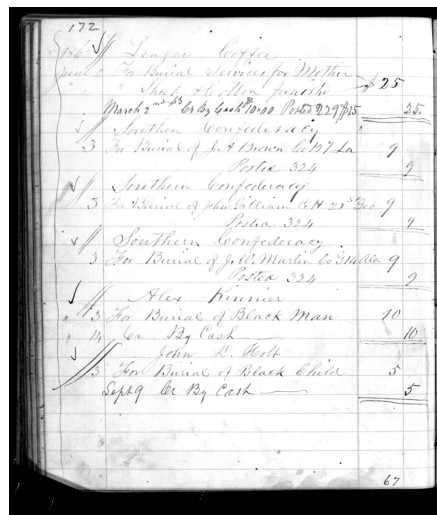 172
186
June 2 For Burial Services for Mother
" " Cotton furnishd $ 25
March 2nd 63 Cr By Cash $10.00 Posted 229 $15 25.
Southern Confederacy
3 For Burial of J A Brown Co La 9
Posted 324 9
Southern Confederacy
3 For Burial of John Gilliam Co H 21st Geo 9
Posted 324 9
Southern Confederacy
3 For Burial of J. W. Martin Co G 14 Ala 9
Posted 324 9
Alex Kinnier
" 3 For Burial of Black Man 10
" 14 Cr By Cash 10
John D. Holt
3 For Burial of Black Child 5
Sept 9 Cr By Cash 5
67